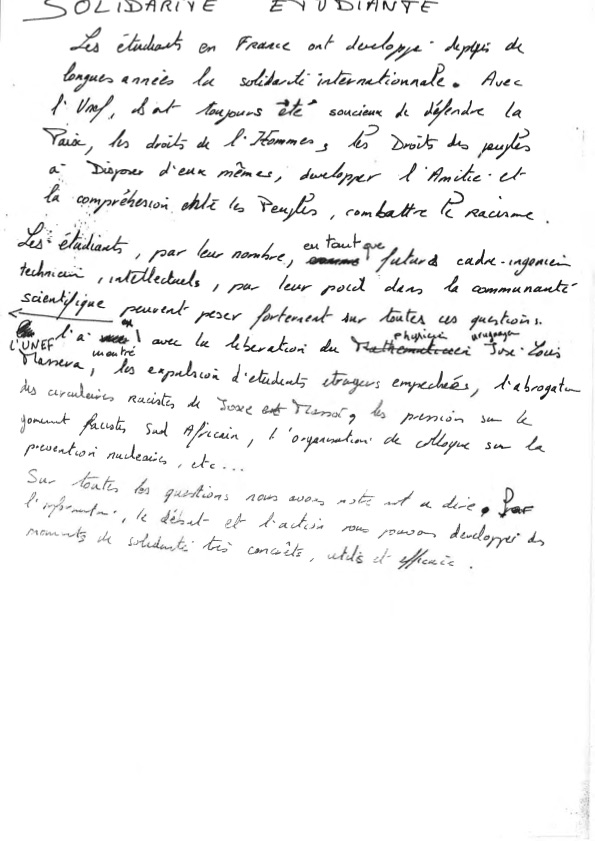 SOLIDARITE ETUDIANTE
Les étudiants en France ont developpé depuis de
longues années la solidarité internationnale. Avec
l'Unef, ils ont toujours été soucieux de défendre la
Paix, les droits de l'Hommes, les Droits des peuples
à Disposer d'eux mêmes, developper l'Amitié et
la compréhension entre les Peuples, combattre le racisme.
Les étudiants, par leur nombre, en tant que futurs cadre-ingenieur
technicien, intellectuels, par leur poid dans la communauté
scientifique peuvent peser fortement sur toutes ces questions.
L'UNEF l'a montré avec la liberation du physicien uruguayen José-Louis
Massera, les expulsion d'etudents etrangers empechées, l'abrogation
des circulaires racistes de et , les pression sur le
facistes Sud Africain, l'organisation de colloque sur la
prevention nucleaires, etc...
Sur toutes les questions nous avons notre mot a dire. Par
l'information, le débat et l'action nous pouvons developper des
moments de solidarité très concrêts, utiles et efficace.